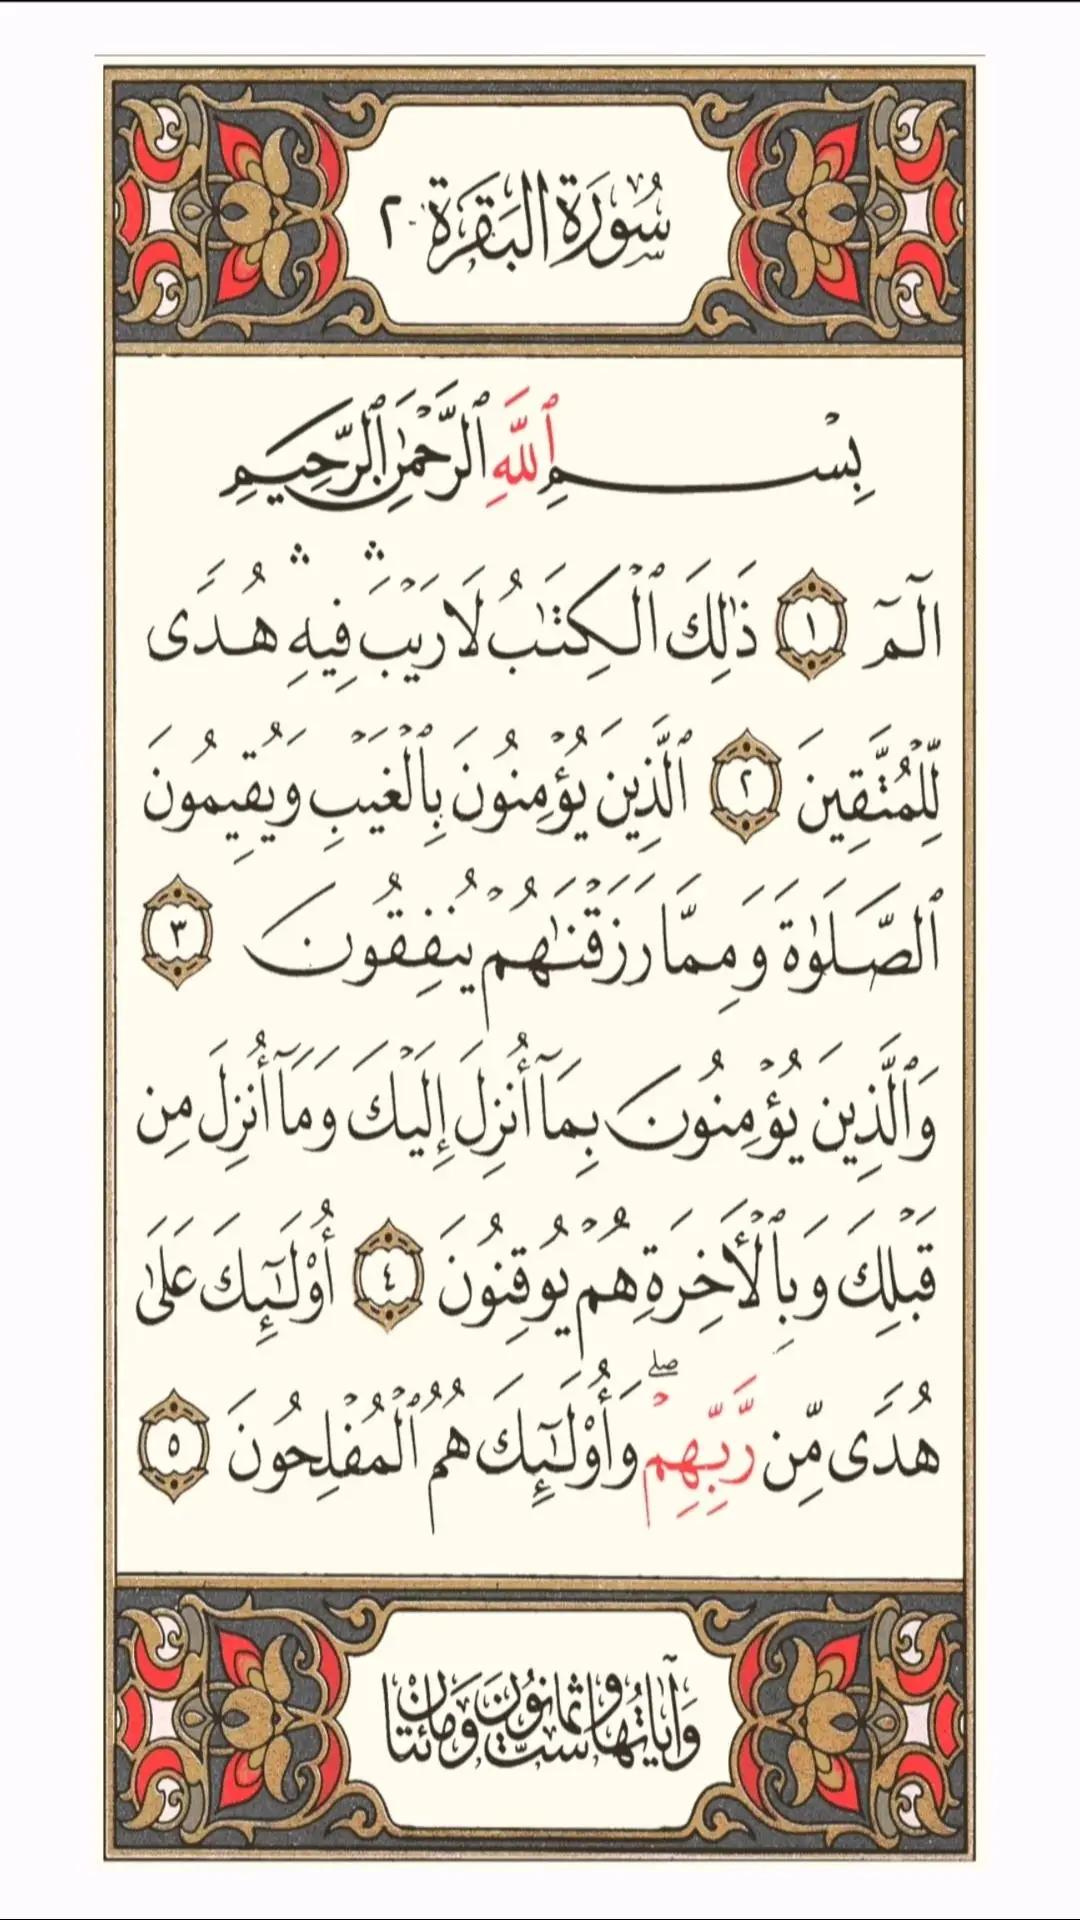 سُورَةُ البَقَرَةِ -٢
بِسْمِ ٱللَّهِ ٱلرَّحْمَٰنِ ٱلرَّحِيمِ
الٓمٓ ١ ذَٰلِكَ ٱلْكِتَٰبُ لَا رَيْبَ ۛ فِيهِ ۛ هُدًى
لِّلْمُتَّقِينَ ٢ ٱلَّذِينَ يُؤْمِنُونَ بِٱلْغَيْبِ وَيُقِيمُونَ
ٱلصَّلَوٰةَ وَمِمَّا رَزَقْنَٰهُمْ يُنفِقُونَ ٣
وَٱلَّذِينَ يُؤْمِنُونَ بِمَآ أُنزِلَ إِلَيْكَ وَمَآ أُنزِلَ مِن
قَبْلِكَ وَبِٱلْأَخِرَةِ هُمْ يُوقِنُونَ ٤ أُوْلَٰٓئِكَ عَلَىٰ
هُدًى مِّن رَّبِّهِمْ ۖ وَأُوْلَٰٓئِكَ هُمُ ٱلْمُفْلِحُونَ ٥
وَآيَاتُهَا سِتٌّ وَثَمَانُونَ وَمَائَتَانِ